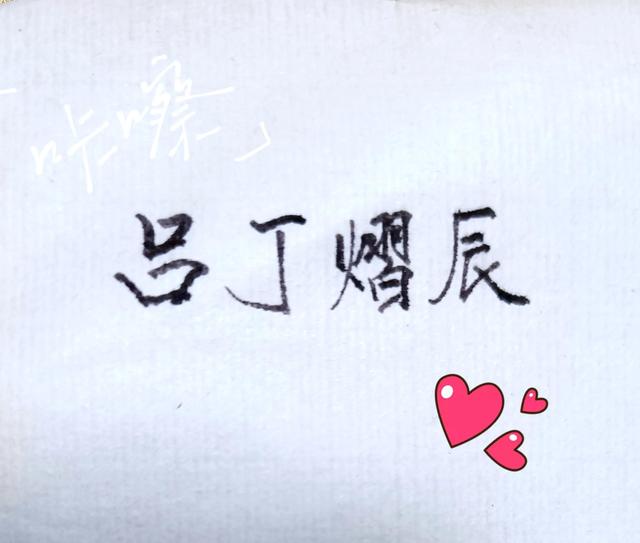 咔嚓
吕丁熠辰